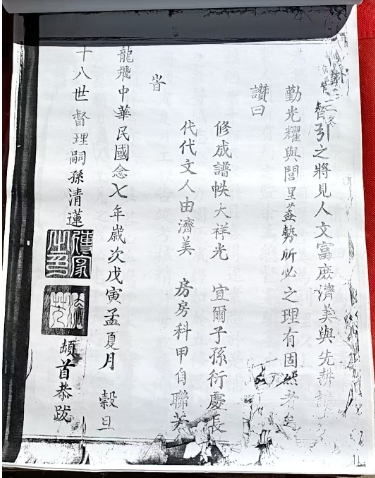 督引之將見人文富庶濟美與先
勤光耀與閭里並勢所必之理有固然者矣
讚曰
修成譜帙大祥光 宜爾子孫衍慶長
代代文人由濟美 房房科甲自聯芙
旹
龍飛中華民國念七年歲次戊寅孟夏月 穀旦
十八世督理嗣孫清蓮 頓首恭跋